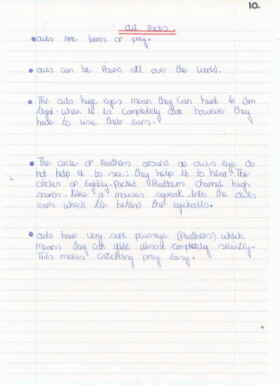 10.
owl facts.
owls are birds of prey.
owls can be found all over the world.
The owls huge eyes mean they can hunt in dim
light when it is completely dark however they
have to use their ears.
The circle of feathers around an owls eye do
not help it to see: they help it to hear! The
circles of tightly-packed feathers channel high
sounds like a mouses squeak into the owls
ears which lie behind the
owls have very soft plumage (feathers) which
means they can glide almost completely silently.
This makes catching prey easy.